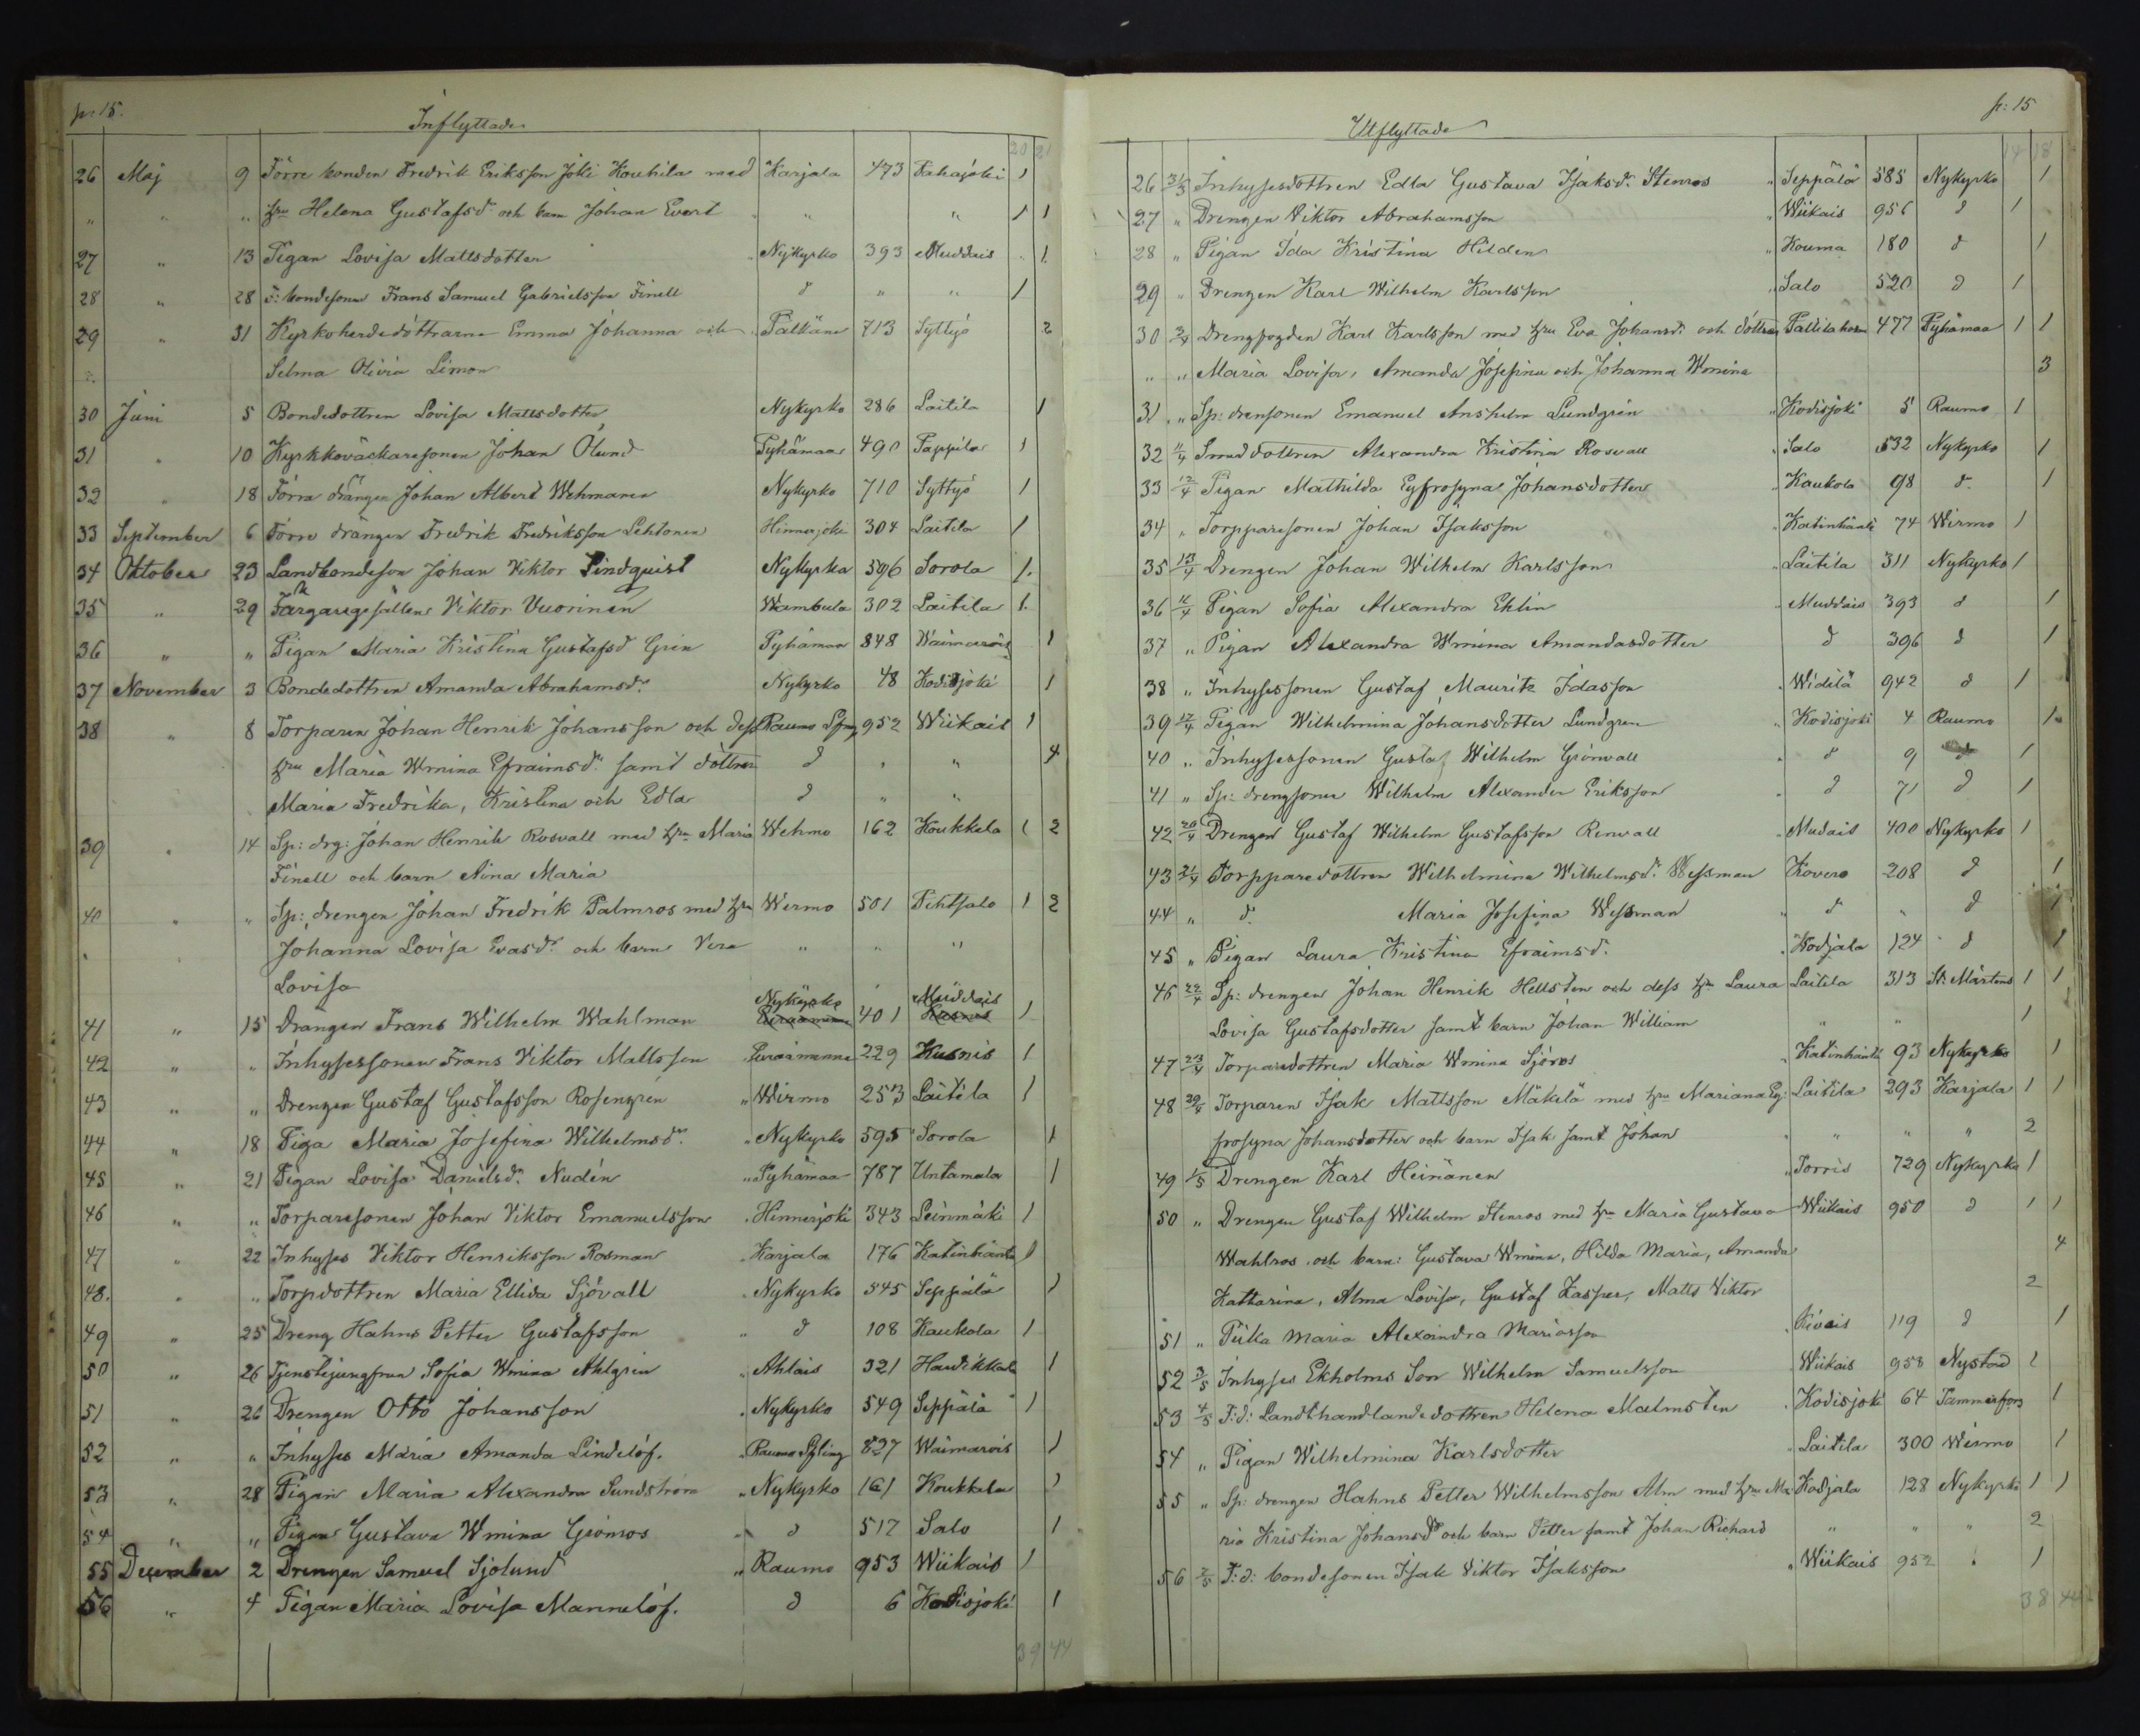 p: 15.
Inflyttade
20 21
26 Maj 9 Förre bonden Fredrik Eriksson Joki Kouhila med Karjala 473 Pahajoki 1
" " " hru Helena Gustafsd:r och barn Johan Evert " " 1 1
27 " 13 Pigan Lovisa Mattsdotter " Nykyrko 393 Muddais 1
28 " 28 F: bondesonen Frans Samuel Gabrielsson Finell d " " 1
29 " 31 Kyrkoherdedöttrarna Emma Johanna och Pälkäne 713 Syttyö 2
Selma Olivia Limon
30 Juni 5 Bondedottren Lovisa Mattsdotter Nykyrko 286 Laitila 1
31 " 10 Kyrkkoväktaresonen Johan Ölund Pyhämaa 490 Pappila 1
32 " 18 Förra drängen Johan Albert Wehmanen Nykyrko 710 Syttyö 1
33 September 6 Förre drängen Fredrik Fredriksson Lehtonen Hinnerjoki 304 Laitila 1
34 Oktober 23 Landbondeson Johan Viktor Lindquist Nykyrka 596 Sorola 1.
35 " 29 Färgaregesällen Viktor Vuorinen Wambula 302 Laitila 1.
36 " " Pigan Maria Kristina Gustafsd Grén Pyhämaa 848 Waimarois 1
37 November 3 Bondedottren Amanda Abrahamsd:r Nykyrko 48 Kodisjoki 1
38 " 8 Torparen Johan Henrik Johansson och dess Raumo 952 Wiikais 1
hru Maria Wmina Efraimsd:r samt döttrar d " " 4
Maria Fredrika, Kristina och Edla d " "
39 " 14 Sp: drg: Johan Henrik Rosvall med hru Maria Wehmo 162 Koukkela 1 2
Finell och barn Aina Maria
40 " " Sp: drengen Johan Fredrik Palmros med hru Wirmo 501 Pehtsalo 1 2
Johanna Lovisa Evasd:r och barn Vera " " "
Lovisa
Nykyrko Muddais
41 " 15 Drängen Frans Wilhelm Wahlman 401 1
42 " " Inhysessonen Frans Viktor Mattsson Euraåminne 229 Kusnis 1
43 " " Drengen Gustaf Gustafsson Rosengrén " Wirmo 253 Laitila 1
44 " 18 Piga Maria Josefina Wilhelmsd:r " Nykyrko 595 Sorola 1
45 " 21 Pigan Lovisa Danielsd:r Nudén " Pyhämaa 787 Untamala 1
46 " " Torparesonen Johan Viktor Emanuelsson " Hinnerjoki 343 Leinmäki 1
47 " 22 Inhyses Viktor Henriksson Rosman " Karjala 176 Katinhänta 1
48. " " Torpdottren Maria Ellida Sjövall " Nykyrko 545 Seppälä 1
49 " 25 Dreng Hahns Petter Gustafsson " d 108 Kaukola 1
50 " 26 Tjenstejungfrun Sofia Wmina Ahlgrén " Ahlais 321 Haudikkala 1
51 " 26 Drengen Otto Johansson " Nykyrko 549 Seppälä 1
52 " " Inhyses Maria Amanda Lindelöf. " Raumo 827 Waimarois 1
53 " 28 Pigan Maria Alexandra Sundström " Nykyrko 161 Koukkela 1
54 " " Pigan Gustava Wmina Grönroos " d 517 Salo 1
55 December 2 Drengen Samuel Sjölund " Raumo 953 Wiikais 1
56 " 4 Pigan Maria Lovisa Mannelöf. d 6 Kodisjoki 1
39 44
p: 15
Utflyttade
14 18
26 31/3 Inhysesdottren Edla Gustava Isaksd:r Stenros " Seppälä 585 Nykyrko 1
27 " Drengen Viktor Abrahamsson " Wiikais 956 d 1
28 " Pigan Ida Kristina Hilden " Kouma 180 d 1
29 " Drengen Karl Wilhelm Karlsson " Salo 520 d 1
30 3/4 Drengfogden Karl Karlsson med hru Eva Johansd:r och döttrar 477 Pyhämaa 1 1
" " Maria Lovisa, Amanda Josefina och Johanna Wmina 3
31 " Sp: drensonen Emanuel Anshelm Lundgrén " Kodisjoki 5 Raumo 1
32 11/4 Smeddottren Alexandra Kristina Rosvall " Salo 532 Nykyrko 1
33 12/4 Pigan Mathilda Eyfrosyna Johansdotter " Kaukola 98 d. 1
34 " Torpparesonen Johan Isaksson " Katinhänta 74 Wirmo 1
35 13/4 Drengen Johan Wilhelm Karlsson " Laitila 311 Nykyrko 1
36 16/4 Pigan Sofia Alexandra Eklin " Muddais 393 d 1
37 " Pigan Alexandra Wmina Amandasdotter d 396 d 1
38 " Inhysessonen Gustaf Mauritz Idasson " Widilä 942 d 1
39 17/4 Pigan Wilhelmina Johansdotter Lundgren " Kodisjoki 4 Raumo 1
40 " Inhysessonen Gustaf Wilhelm Grönvall " d 9 d 1
41 " Sp: drengsonen Wilhelm Alexander Eriksson " d 71 d 1
42 20/4 Drengen Gustaf Wilhelm Gustafsson Renvall " Mudais 400 Nykyrko 1
43 21/4 Torpparedottren Wilhelmina Wilhelmsd:r Wessman Kovero 208 d 1
44 " d. Maria Josefina Wessman " d " d 1
45 " Pigan Laura Kristina Efraimsd:r " Kodjala 124 d 1
46 22/4 Sp: drengen Johan Henrik Hellsten och dess hru Laura Laitila 313 St: Mårtens 1 1
Lovisa Gustafsdotter samt barn Johan William " " 1
47 23/4 Torparedottren Maria Wmina Sjöros " Katinhänta 93 Nykyrko 1
48 29/4 Torparen Isak Mattsson Mäkelä med hru Mariana Ey: Laitila 293 Karjala 1 1
frosyna Johansdotter och barn Isak samt Johan " " " 2
49 1/5 Drengen Karl Heinänen " Torris 729 Nykyrko 1
50 " Drengen Gustaf Wilhelm Stenros med hru Maria Gustava Wiikais 950 d 1 1
Wahlros och barn: Gustava Wmina, Hilda Maria, Amanda 4
Katharina, Alma Lovisa, Gustaf Kasper, Matts Viktor 2
51 " Piika Maria Alexandra Mariasson " Kivais 119 d 1
52 3/5 Inhyses Ekholms Son Wilhelm Samuelsson " Wiikais 958 Nystad 1
53 4/5 F:d: Landthandlandedottren Helena Malmsten " Kodisjoki 64 Tammerfors 1
54 " Pigan Wilhelmina Karlsdotter " Laitila 300 Wirmo 1
55 " Sp: drengen Hahns Petter Wilhelmsson Alm med hru Ma: Kodjala 128 Nykyrko 1 1
ria Kristina Johansd:r och barn Petter samt Johan Richard " " " 2
56 7/5 F:d: bondesonen Isak Viktor Isaksson " Wiikais 952 " 1
38 44